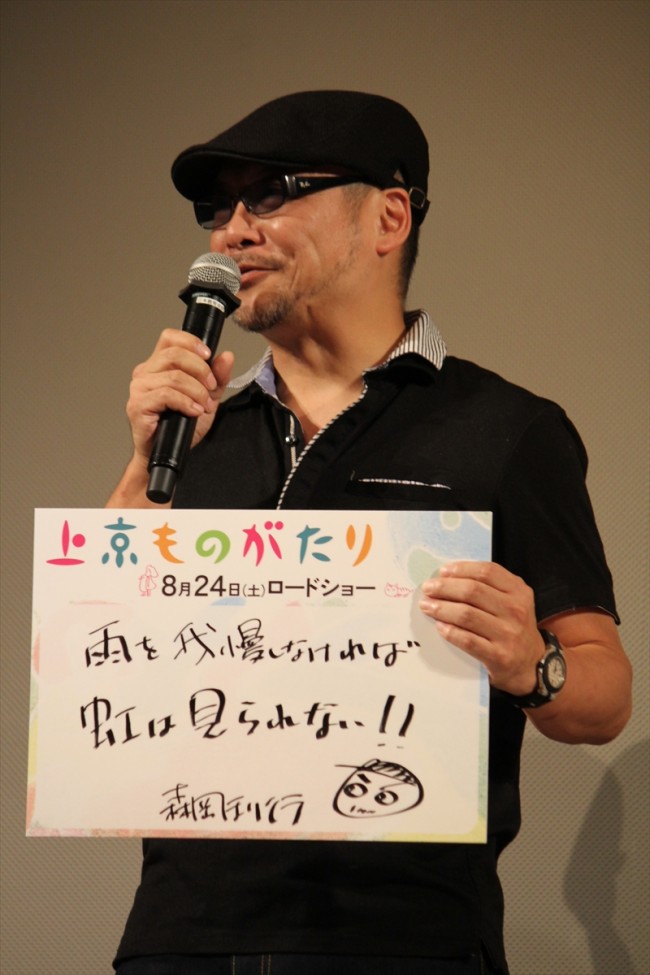 上京ものがたり
8月24日(土)ロードショー
雨を我慢しなければ
虹は見られない!!
森岡利行